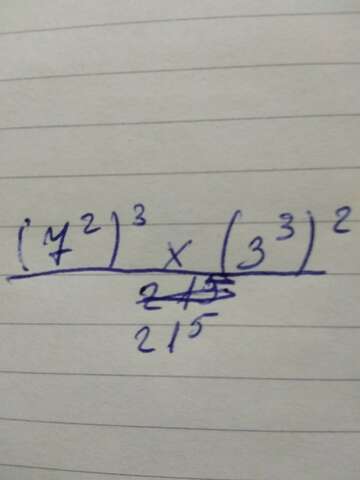 (7²)³ × (3³)²
21⁵